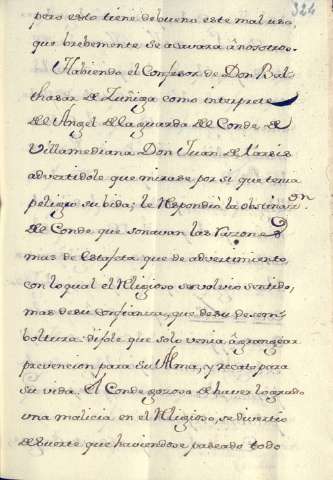 324
pero esto tiene de bueno este mal uso
que brebemente se acavara â nosotros.
Habiendo el Confesor de Don Bal
thasar de Zuñiga como interprete
del Angel de la guarda del Conde de
Villamediana Don Juan de Tarsis
advertidole que mirase por si que tenia
peligro su bida; le Respondiò la obstinazon
del Conde que sonavan las razones
mas de estafeta que de advertimiento
con lo qual el Religioso se volvio sentido,
mas de su confianza, que de su desem
boltura: dijole que solo venia â grangear
prevencion para su Alma, y recato para
su vida. El Conde gozoso de haver logrado
una malicia en el Religioso, se divertio
de suerte que haviendose paseado todo